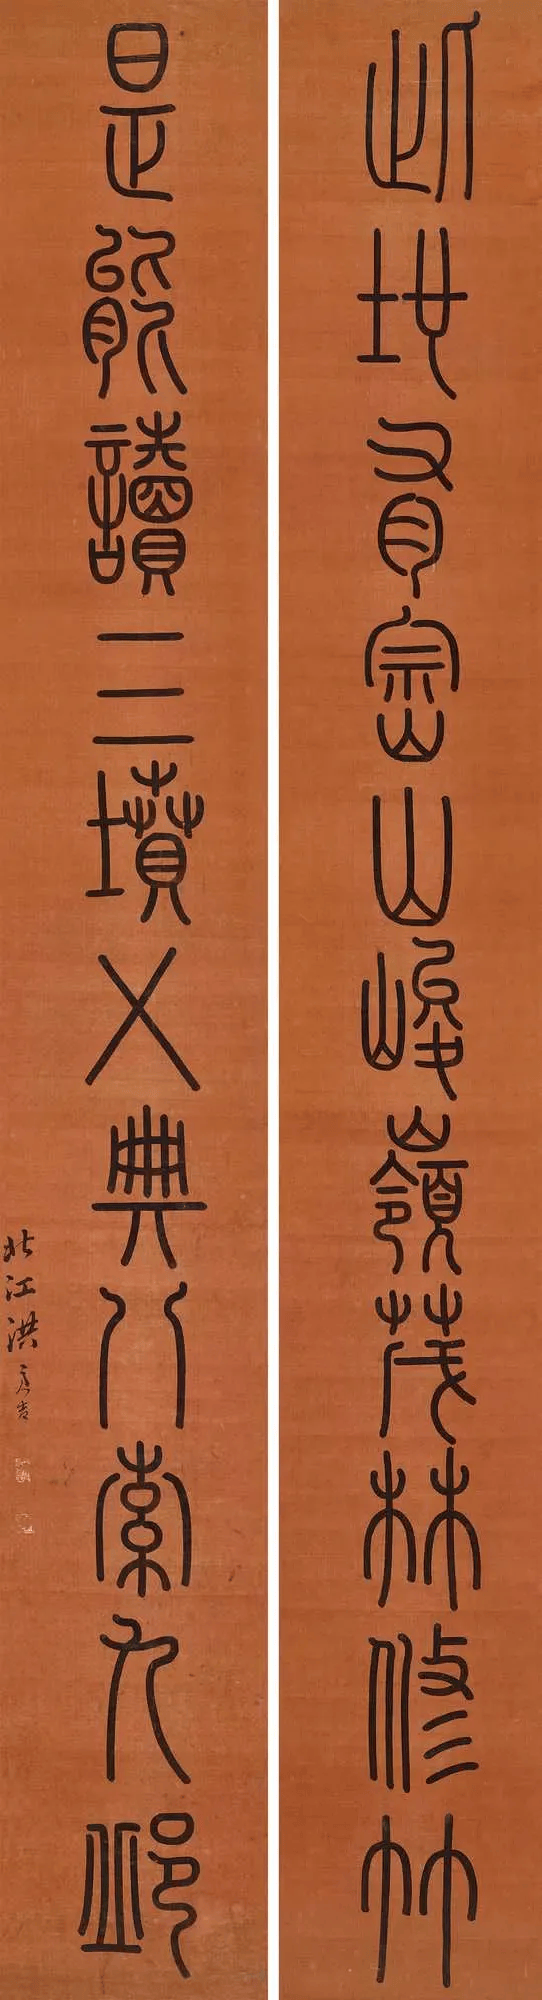 此地有崇山峻嶺茂林修竹
是能讀三墳五典八索九邱
北江洪亮吉